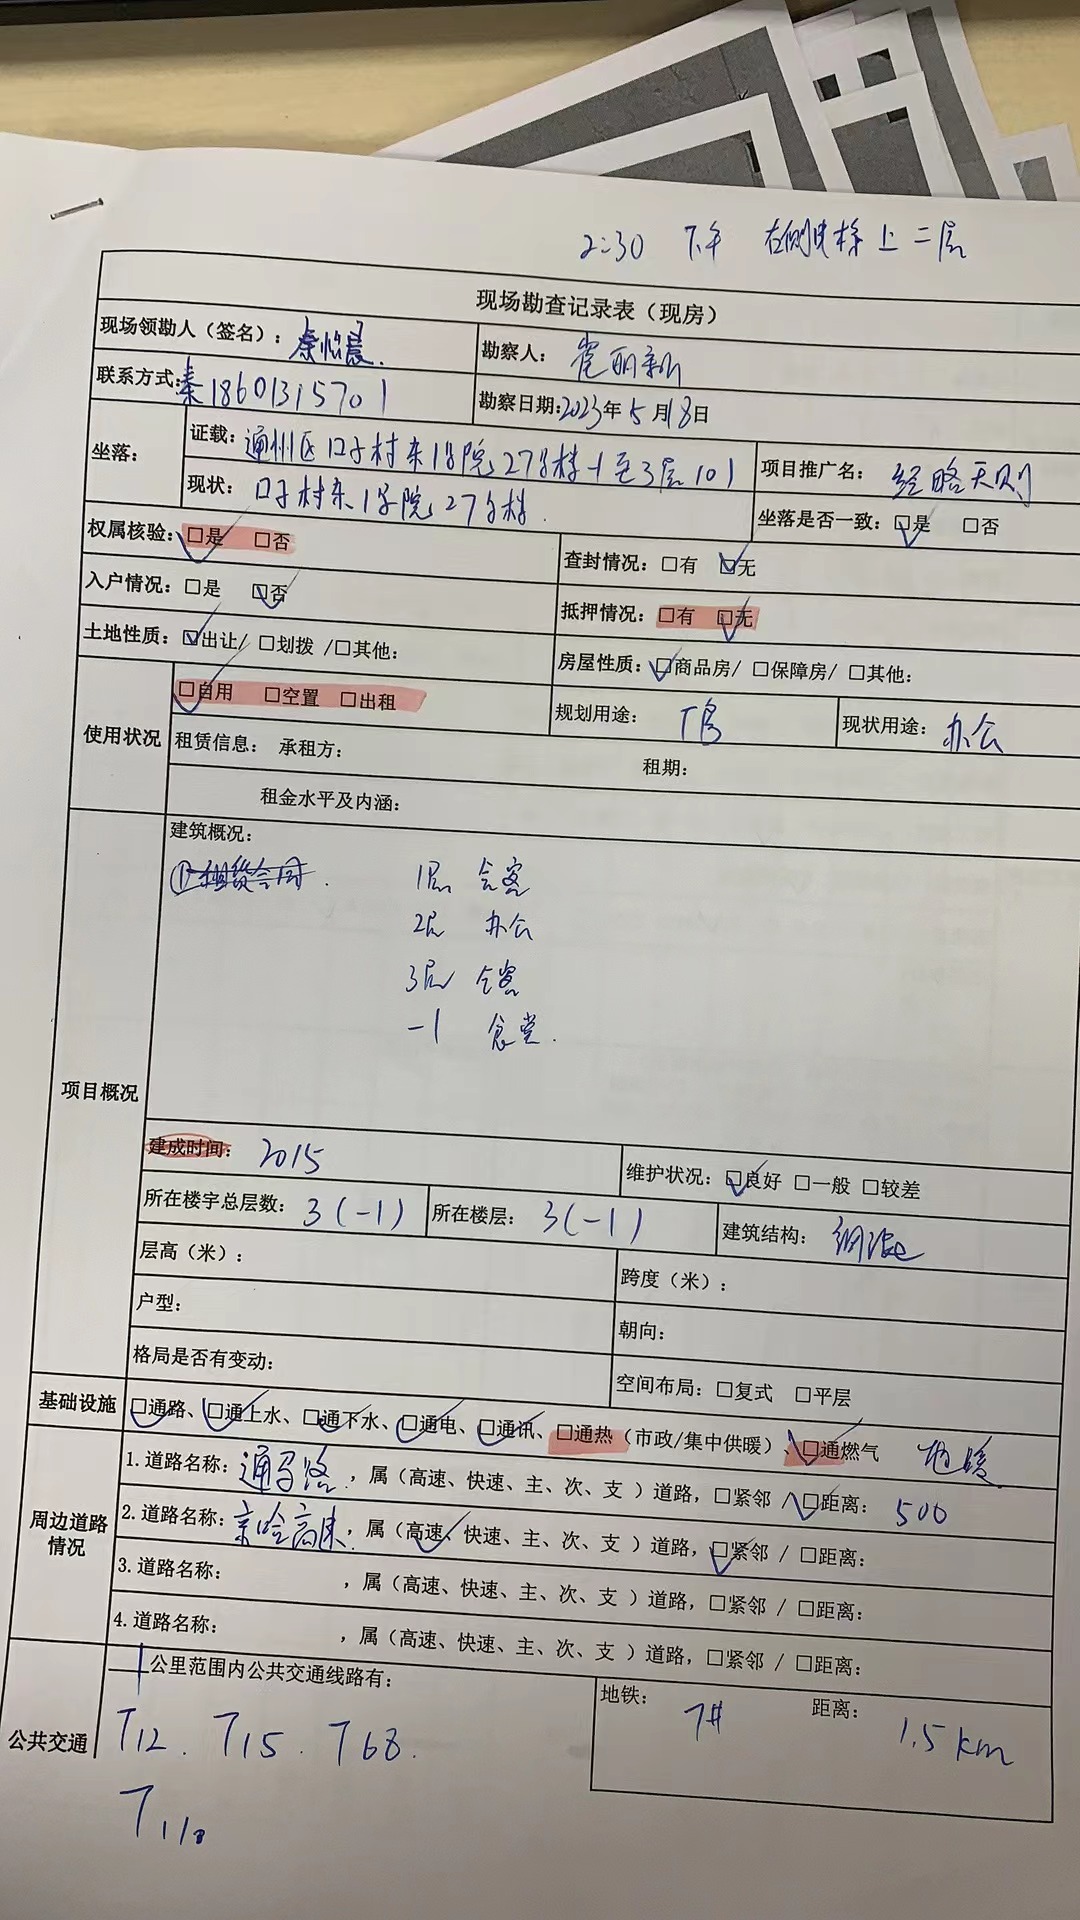 2:30 下午 右侧电梯上二层
现场勘查记录表（现房）
现场领勘人（签名）：秦怡晨. 勘察人：崔丽新
联系方式：秦18601315701 勘察日期：2023年5月18日
坐落： 证载：通州区口子村东1号院27号楼-1至3层101 项目推广名：经略天则
现状：口子村东1号院27号楼. 坐落是否一致：☑是 □否
权属核验：☑是 □否 查封情况：□有 ☑无
入户情况：□是 ☑否 抵押情况：□有 ☑无
土地性质：☑出让/ □划拨 /□其他： 房屋性质：☑商品房/ □保障房/ □其他：
使用状况 ☑自用 □空置 □出租 规划用途：厂房 现状用途：办公
租赁信息： 承租方： 租期：
租金水平及内涵：
项目概况 建筑概况：
①租赁合同. 1层 会客
2层 办公
3层 会客
-1 食堂.
建成时间：2015 维护状况：☑良好 □一般 □较差
所在楼宇总层数：3(-1) 所在楼层：3(-1) 建筑结构：钢混
层高（米）： 跨度（米）：
户型： 朝向：
格局是否有变动： 空间布局：□复式 □平层
基础设施 ☑通路、☑通上水、☑通下水、☑通电、☑通讯、□通热（市政/集中供暖）、☑通燃气 地暖
周边道路情况 1.道路名称：通马路，属（高速、快速、主、次、支 ）道路，□紧邻 / ☑距离：500
2.道路名称：京哈高速，属（高速✓、快速、主、次、支 ）道路，☑紧邻 / □距离：
3.道路名称： ，属（高速、快速、主、次、支 ）道路，□紧邻 / □距离：
4.道路名称： ，属（高速、快速、主、次、支 ）道路，□紧邻 / □距离：
公共交通 1公里范围内公共交通线路有： 地铁：7# 距离：1.5km
T12. T15. T68.
T110